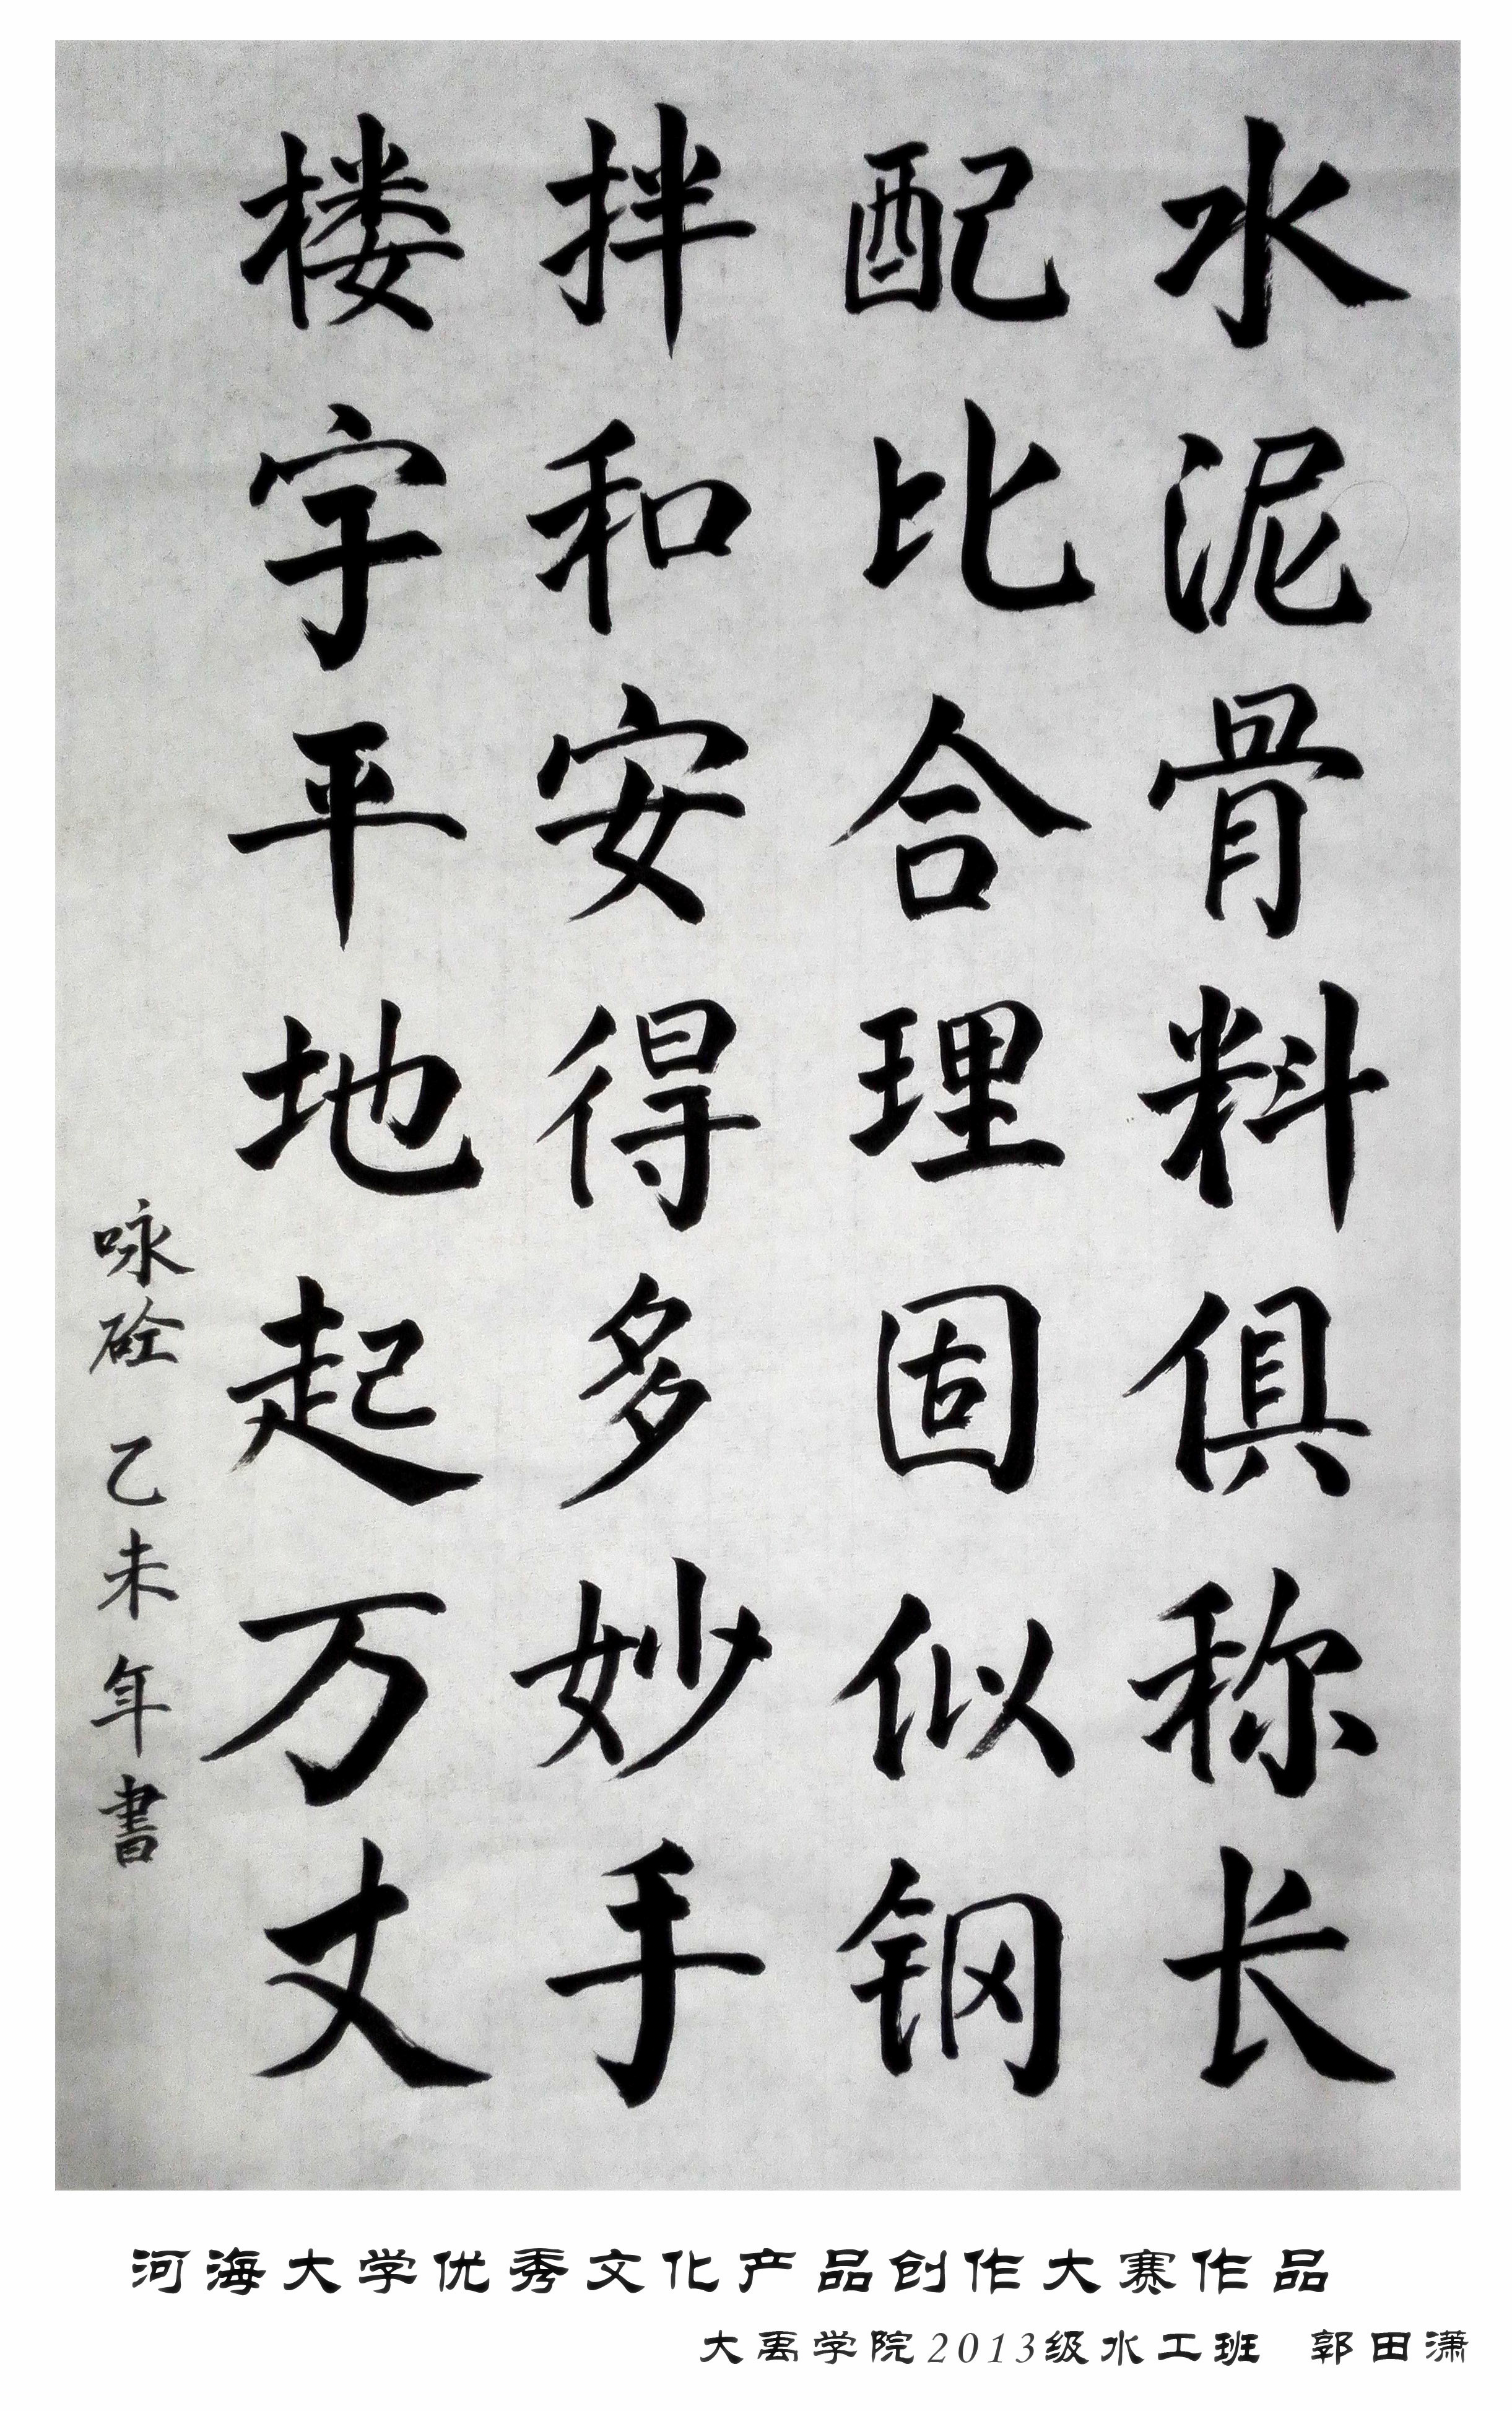 水泥骨料俱称长
配比合理固似钢
拌和安得多妙手
楼宇平地起万丈
咏砼 乙未年書
河海大学优秀文化产品创作大赛作品
大禹学院2013级水工班 郭田潇